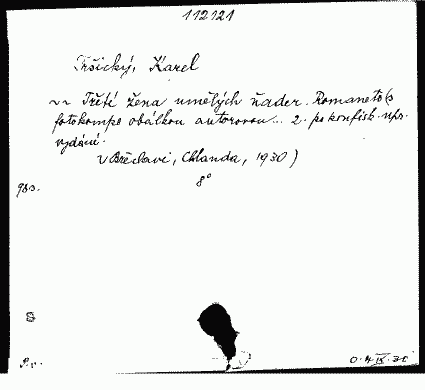 112121
Tršický, Karel
Třetí žena umělých ňader. Romaneto (s
fotokompo obálkou autorovou... 2. po konfisk. upr.
vydání.
V Břeclavi, Chlanda, 1930)
8°
O. 4 IX. 31